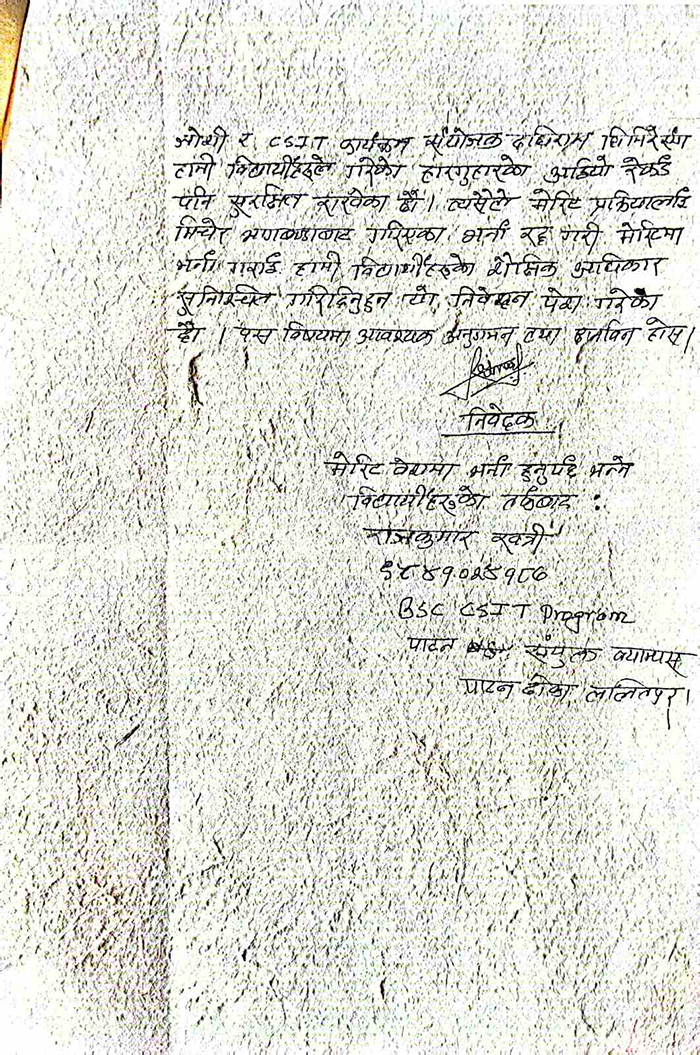 जोशी र CSIT कार्यक्रम संयोजक दधिराम घिमिरेसंग
हामी विद्यार्थीहरुले गरेको हारगुहारका अडियो रेकर्ड
पनि सुरक्षित राखेका छौं। त्यसैले मेरिट प्रक्रियालाई
मिचेर भागबण्डाबाट गरिएका भर्ना रद्द गरी मेरिटमा
भर्ना गराई हामी विद्यार्थीहरुको शैक्षिक अधिकार
सुनिश्चित गरिदिनुहुन यो निवेदन पेश गरेका
छौं । यस विषयमा आवश्यक अनुगमन तथा छानविन होस्।
निवेदक
मेरिट बेसमा भर्ना हुनुपर्छ भन्ने
विद्यार्थीहरुको तर्फबाट :
राजकुमार खत्री
BSC CSIT Program
पाटन संयुक्त क्याम्पस
पाटन ढोका, ललितपुर।